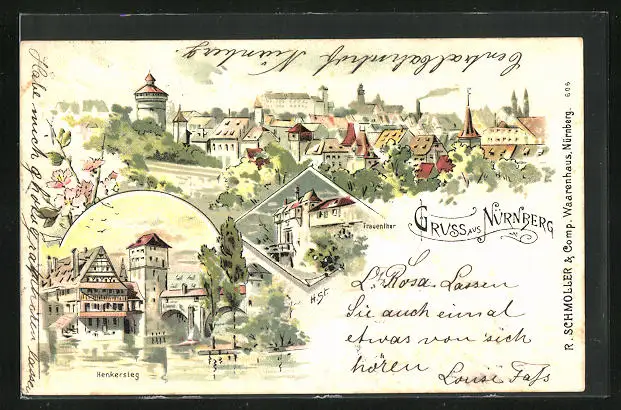 Centralbahnhof Nürnberg.
Habe mich photographieren lassen
GRUSS AUS NÜRNBERG
Frauenthor
H. St.
Henkersteg
Lb. Rosa. Lassen
Sie auch einmal
etwas von sich
hören
Louise Fass
R. SCHMOLLER & Comp. Waarenhaus, Nürnberg. 606